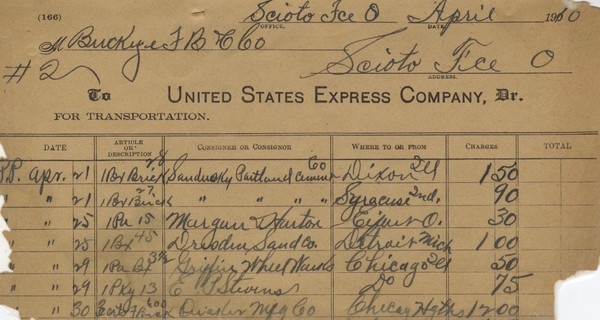 (166) Scioto Fce O April 1910
OFFICE. DATE.
M Buckeye F B Co
#2 Scioto Fce O
ADDRESS.
To UNITED STATES EXPRESS COMPANY, Dr.
FOR TRANSPORTATION.
DATE ARTICLE OR DESCRIPTION CONSIGNEE OR CONSIGNOR WHERE TO OR FROM CHARGES TOTAL
Apr. 21 1 Bx Brick 28 Sandusky Portland Cement Co Dixon Ill 1 50
" 21 1 Bx Brick 27 " " " " Syracuse Ind. 90
" 25 1 Pa 15 Morgan O. 30
" 25 1 Bx 45 Dresden Sand Co. Detroit Mich 1 00
" 29 1 Pa Bx 3½ Griffin Wheel Works Chicago Ill 50
" 29 1 Pkg 13 E Stevens Do 75
" 30 Brick 600 Quaker Mfg Co Chicago Hgths 12 00